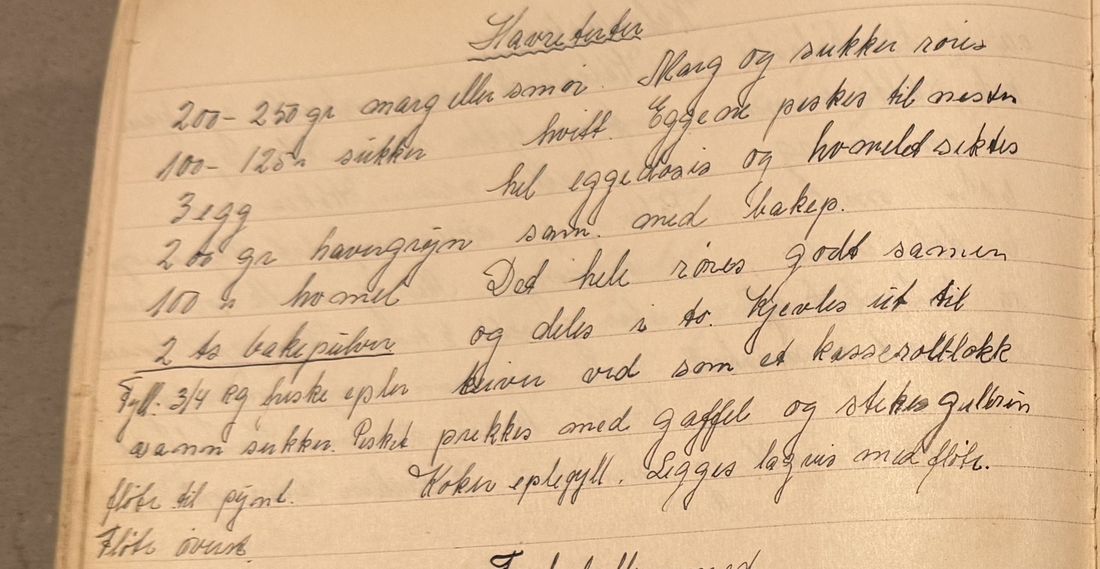 Havreterter
200-250 gr marg eller smør. Marg og sukker røres
100-125 " sukker hvitt. Eggene piskes til nesten
3 egg hel eggedosis og hvmeld siktes
200 gr havregryn sam. med bakep.
100 " hvmel Det hele røres godt samen
2 ts bakepulver og deles i to. Kjevles ut til
Fyll: 3/4 kg friske epler skiver vid som et kasserollelokk
vann sukker. Pisket prekkes med gaffel og stekes gulbrun
fløte til pynt. Koker eplefyll. Legges lagvis med fløte.
Fløte øverst